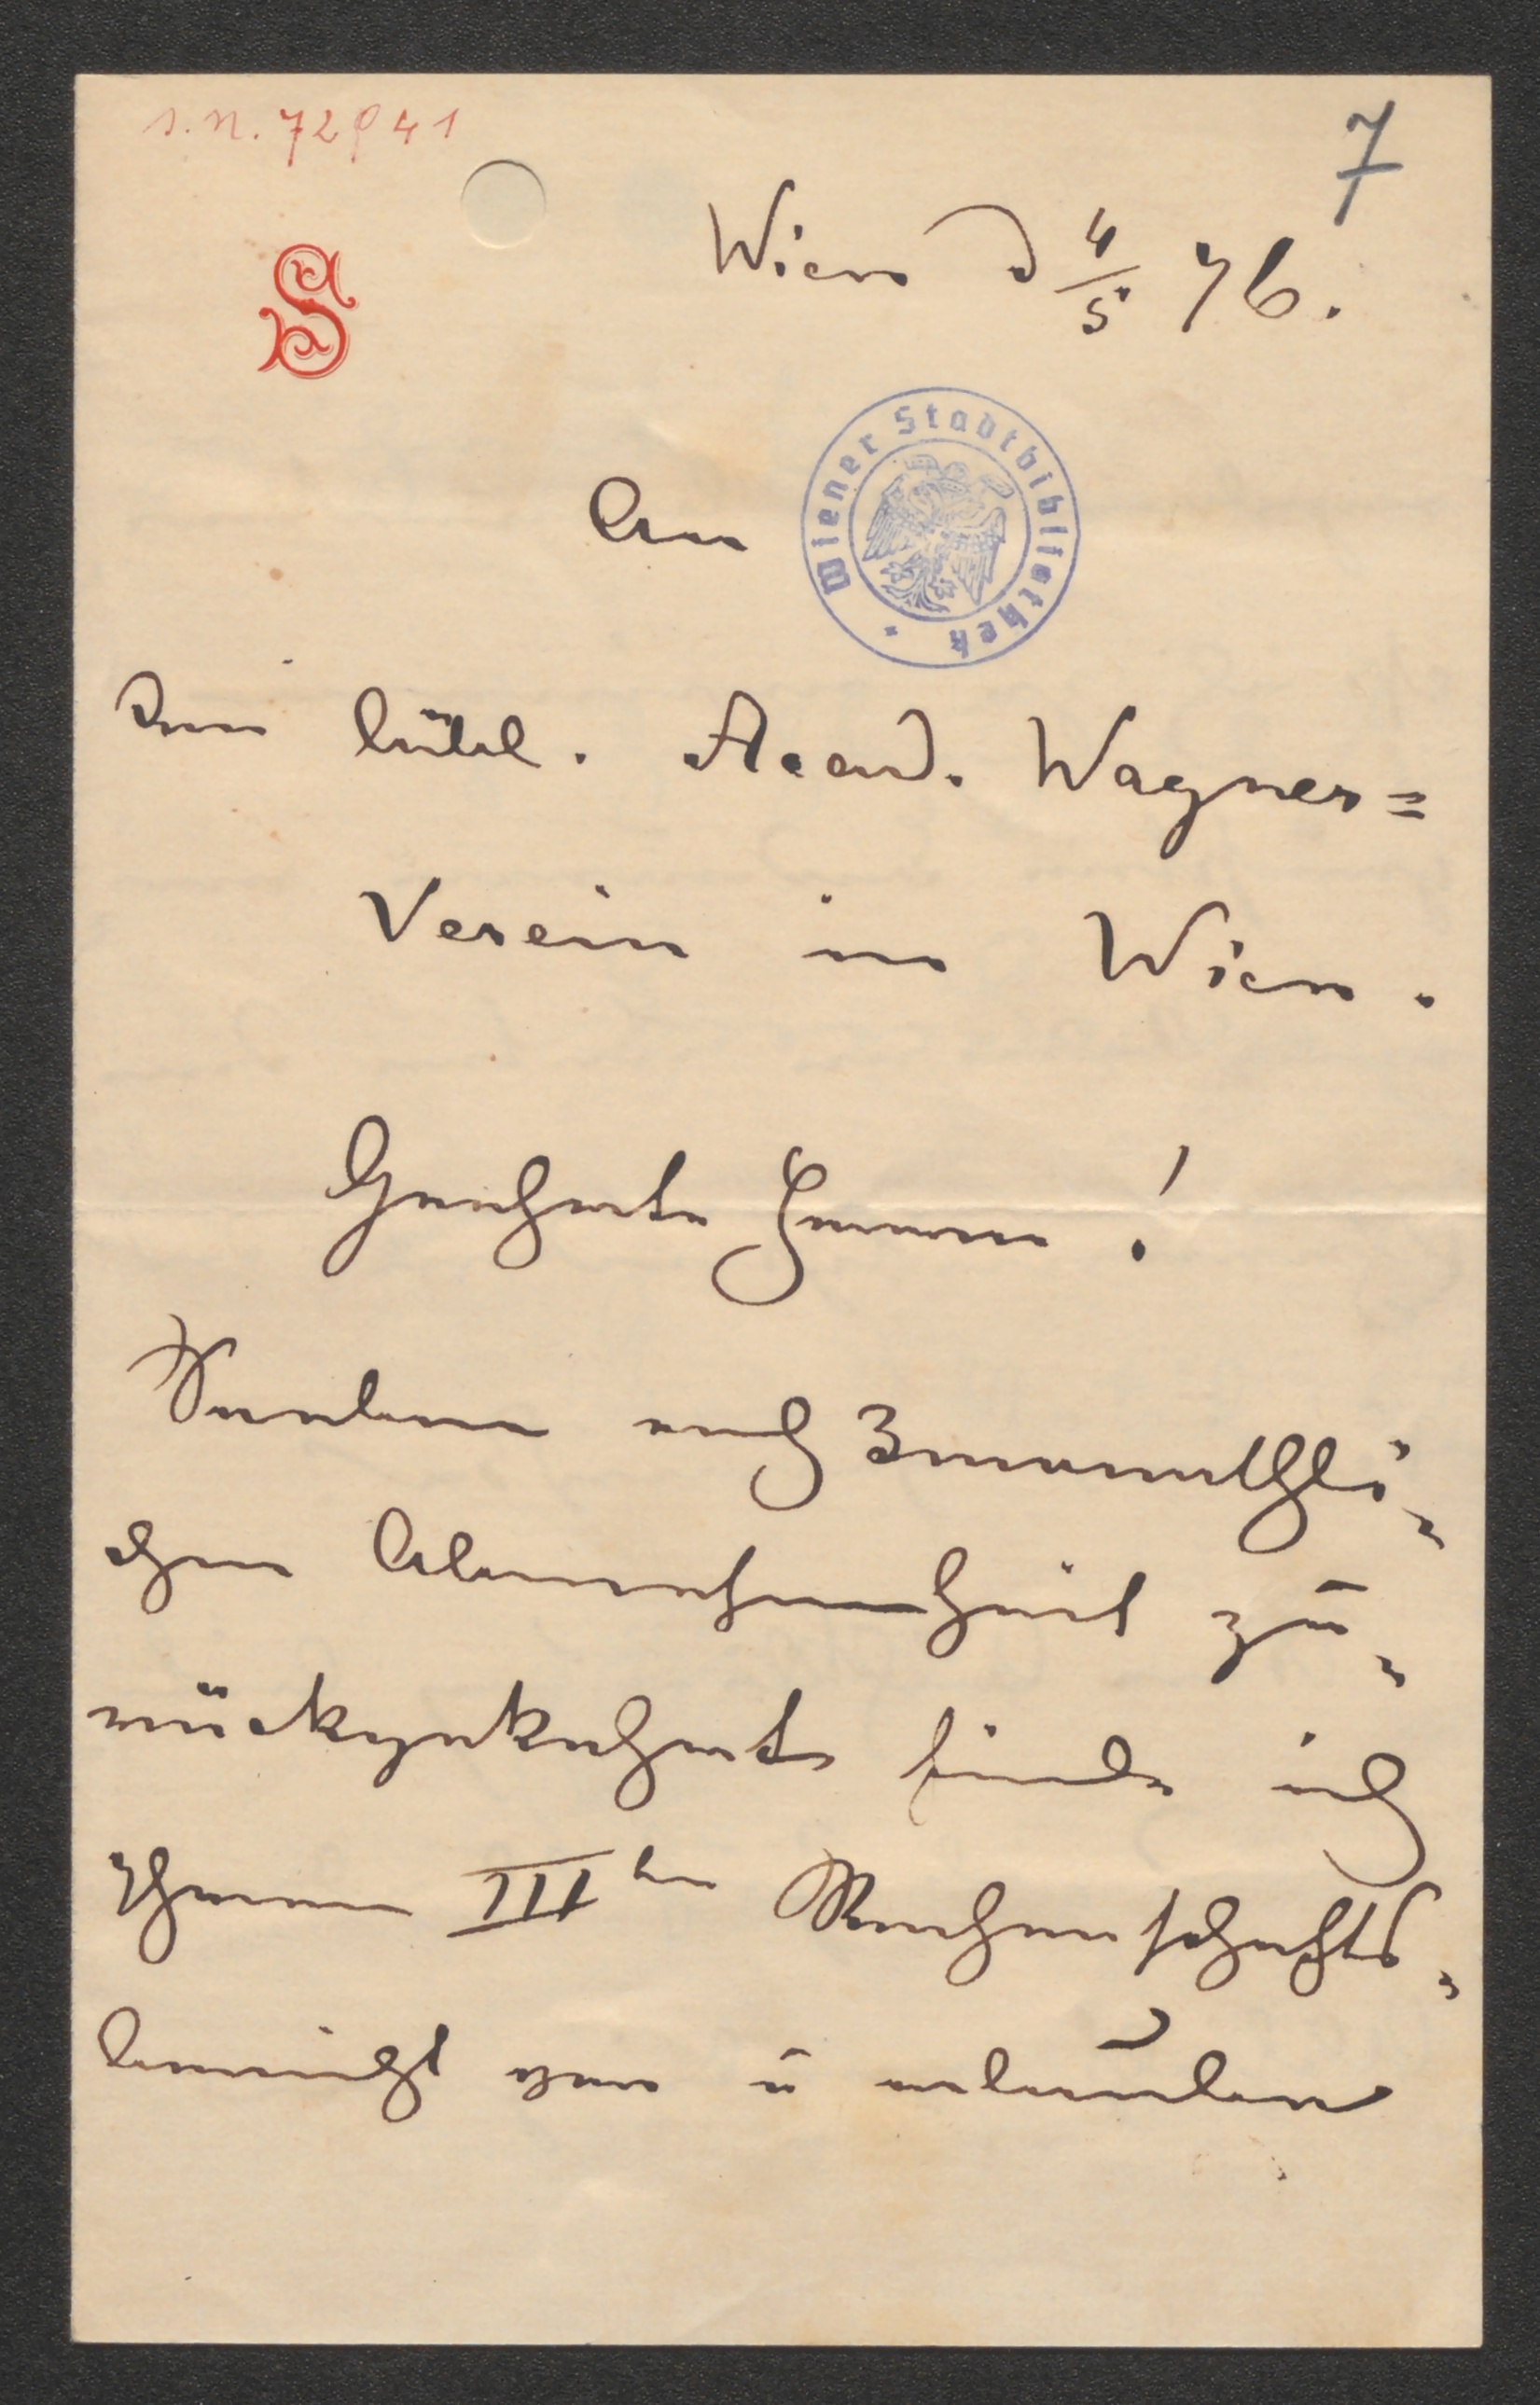 I.N. 72941
7
S
Wien d 4/5 76.
Wiener Stadtbibliothek
An
den löbl. Acad. Wagner=
Verein in Wien.
Geehrte Herren!
Soeben nach 3monathli„
chen Abwesenheit zu„
rückgekehrt finde ich
Ihren IIIten Rechenschafts„
bericht vor u erlaube